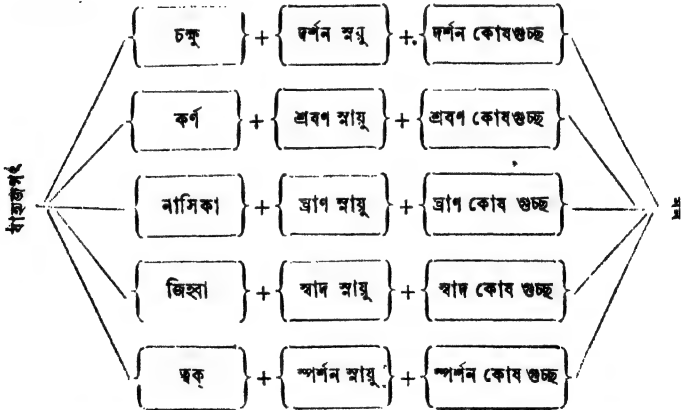 চক্ষু + দর্শন স্নয়ু + দর্শন কোষগুচ্ছ
কর্ণ + শ্রবণ স্নায়ু + শ্রবণ কোষগুচ্ছ
বাহ্যজগৎ
নাসিকা + ঘ্রাণ স্নায়ু + ঘ্রাণ কোষ গুচ্ছ
মন
জিহ্বা + স্বাদ স্নায়ু + স্বাদ কোষ গুচ্ছ
ত্বক্ + স্পর্শন স্নায়ু + স্পর্শন কোষ গুচ্ছ